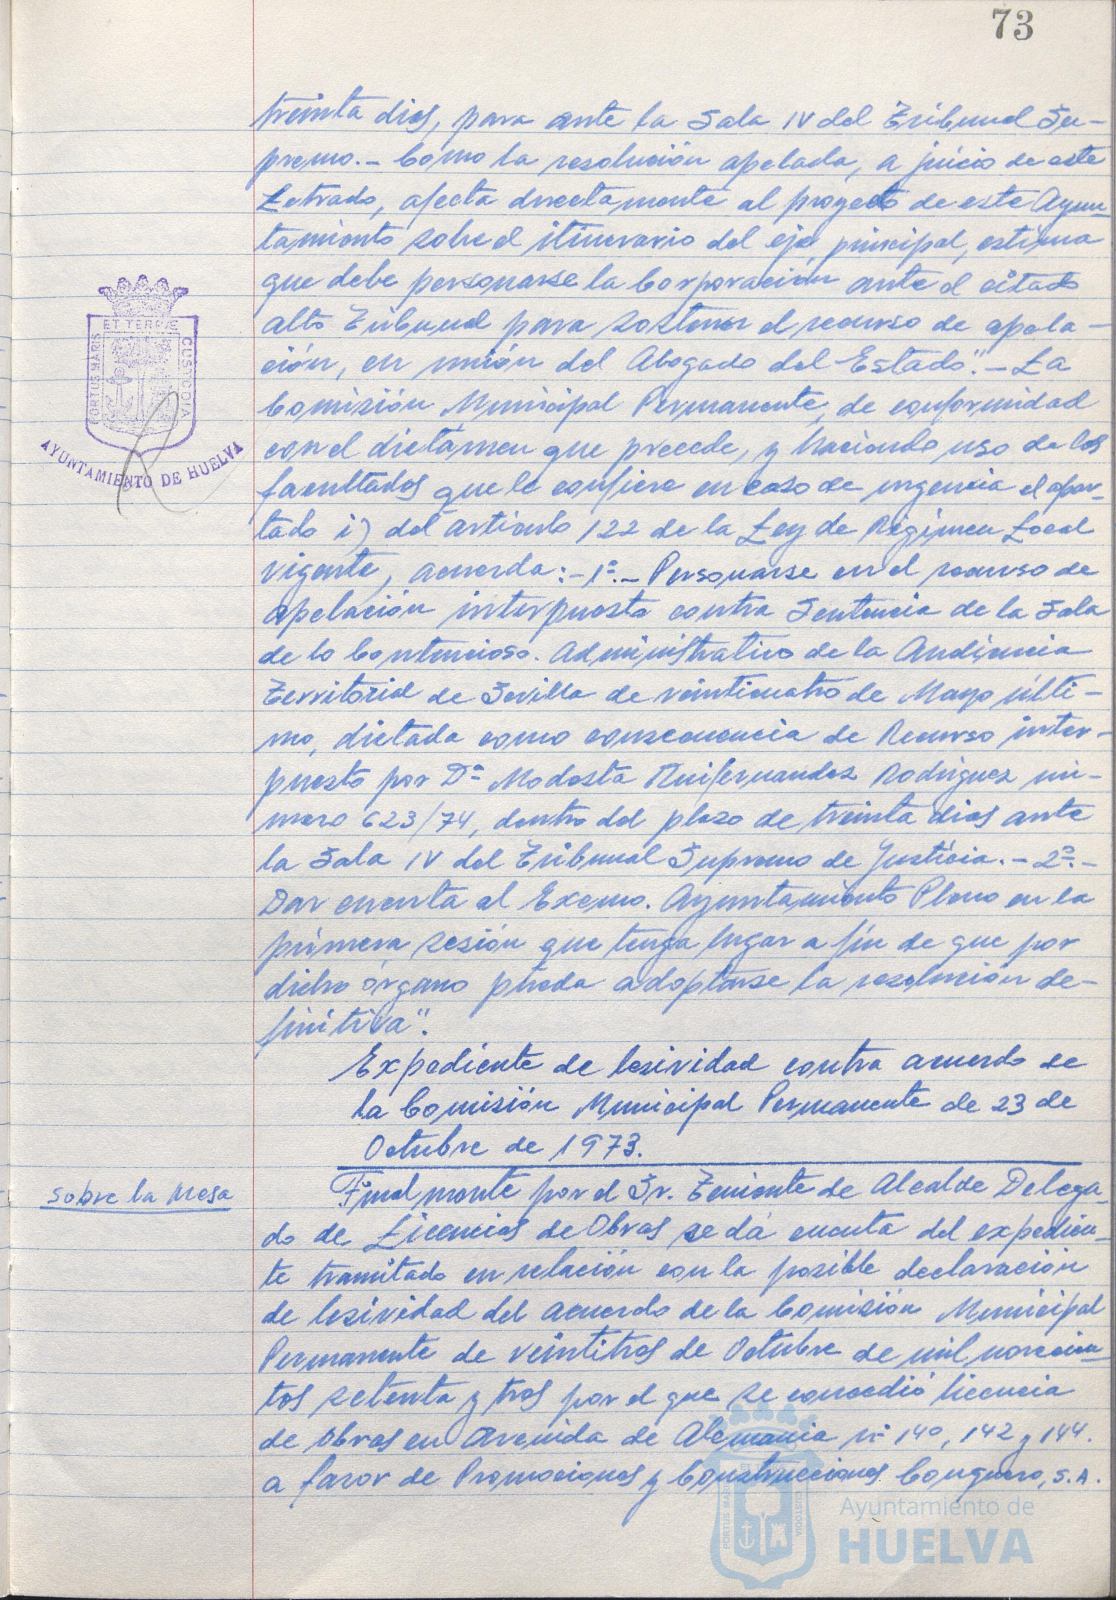 73
treinta dias, para ante la Sala IV del Tribunal Su-
premo.- Como la resolución apelada, a juicio de este
Letrado, afecta directamente al proyecto de este Ayun-
tamiento sobre el itinerario del eje principal, estima
que debe personarse la Corporación ante el citado
alto Tribunal para sostener el recurso de apela-
ción, en unión del Abogado del Estado".- La
Comisión Municipal Permanente, de conformidad
con el dictámen que precede, y haciendo uso de las
facultades que le confiere en caso de urgencia el apar-
tado i) del artículo 122 de la Ley de Régimen Local
vigente, acuerda:- 1º.- Personarse en el recurso de
apelación interpuesto contra Sentencia de la Sala
de lo Contencioso. Administrativo de la Audiencia
Territorial de Sevilla de veinticuatro de Mayo últi-
mo, dictada como consecuencia de Recurso inter-
puesto por Dª Modesta Ruifernandez Rodriguez nú-
mero 623/74, dentro del plazo de treinta dias ante
la Sala IV del Tribunal Supremo de Justicia.- 2º.-
Dar cuenta al Excmo. Ayuntamiento Pleno en la
primera sesión que tenga lugar a fin de que por
dicho órgano pueda adoptarse la resolución de-
finitiva".
Expediente de lesividad contra acuerdo de
la Comisión Municipal Permanente de 23 de
Octubre de 1973.
Sobre la Mesa
Finalmente por el Sr. Teniente de Alcalde Delega-
do de Licencias de Obras se dá cuenta del expedien-
te tramitado en relación con la posible declaración
de lesividad del acuerdo de la Comisión Municipal
Permanente de veintitres de Octubre de mil novecien-
tos setenta y tres por el que se concedió licencia
de obras en Avenida de Alemania nº 140, 142 y 144.
a favor de Promociones y Construcciones Conquero, S.A.
PORTUS MARIS ET TERRÆ CUSTODIA
AYUNTAMIENTO DE HUELVA
Ayuntamiento de
HUELVA